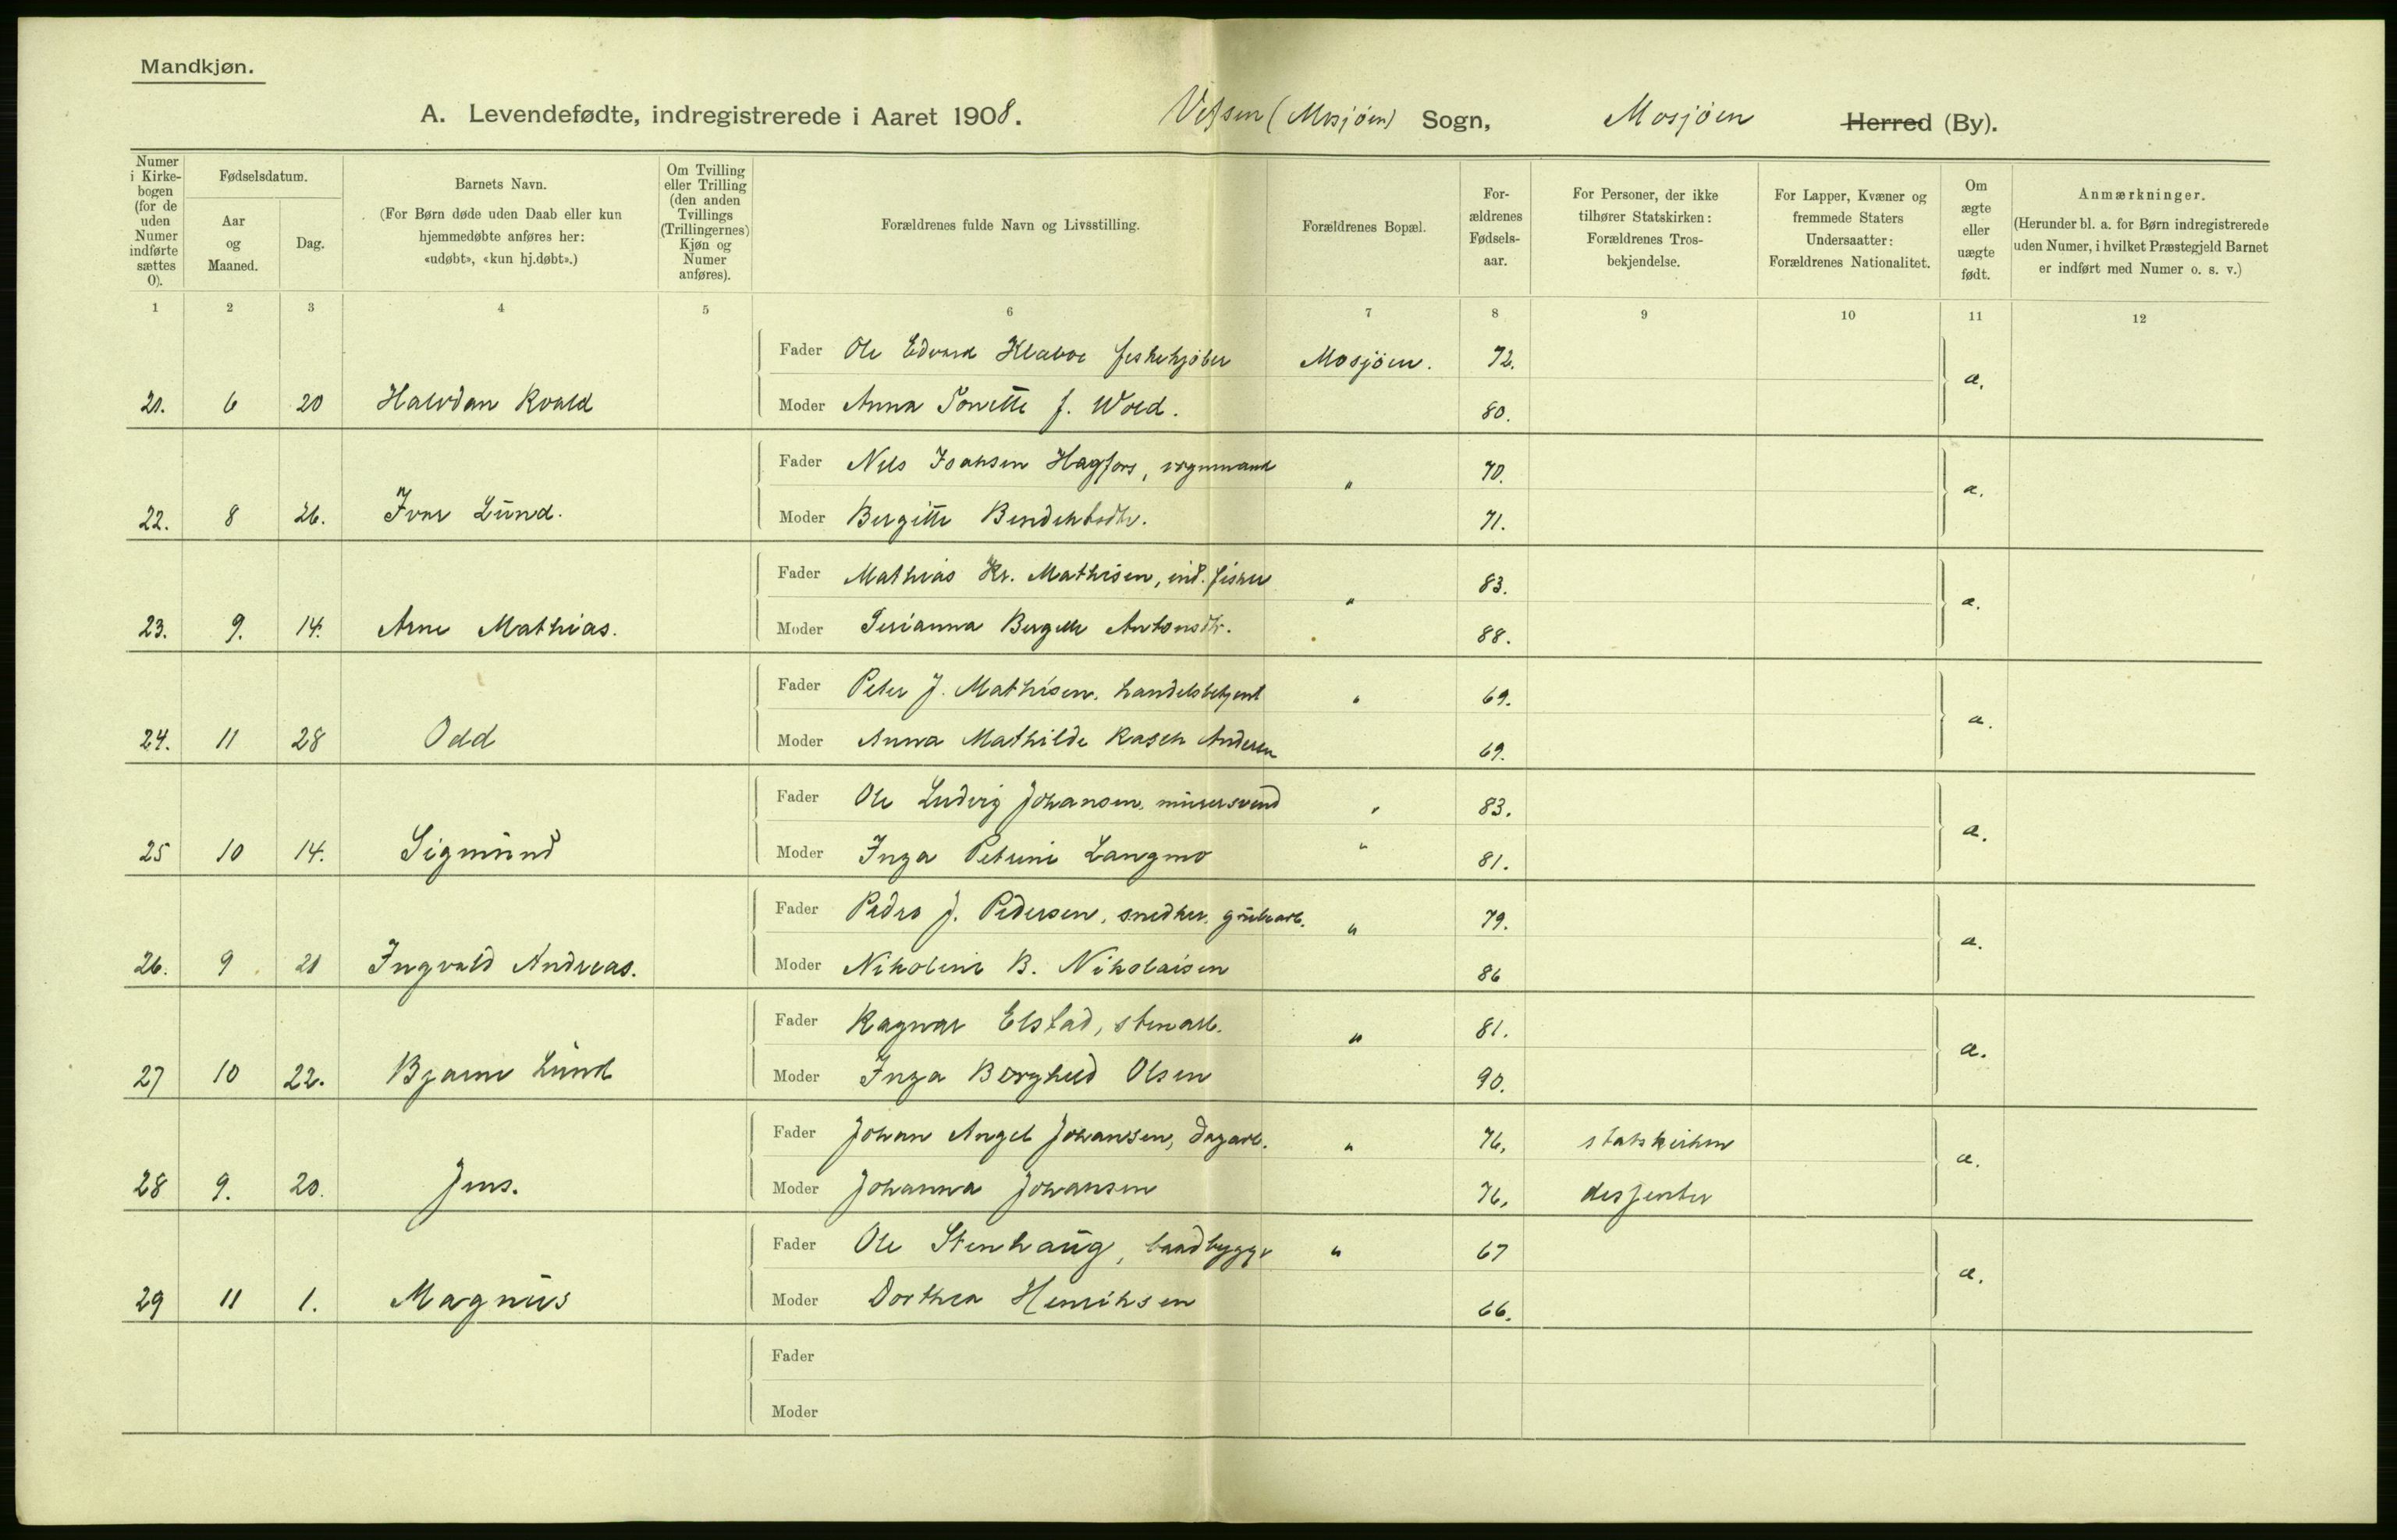 Mandkjøn.
A. Levendefødte, indregistrerede i Aaret 1908. Vefsen (Mosjøen) Sogn, Mosjøen Herred (By).
Numer i Kirkebogen (for de uden Numer indførte sættes 0).
Fødselsdatum.
Aar og Maaned.
Dag.
Barnets Navn.
(For Børn døde uden Daab eller kun hjemmedøbte anføres her: «udøbt», «kun hj.døbt».)
Om Tvilling eller Trilling (den anden Tvillings (Trillingernes) Kjøn og Numer anføres).
Forældrenes fulde Navn og Livsstilling.
Forældrenes Bopæl.
Forældrenes Fødselsaar.
For Personer, der ikke tilhører Statskirken: Forældrenes Trosbekjendelse.
For Lapper, Kvæner og fremmede Staters Undersaatter: Forældrenes Nationalitet.
Om ægte eller uægte født.
Anmærkninger.
(Herunder bl. a. for Børn indregistrerede uden Numer, i hvilket Præstegjeld Barnet er indført med Numer o. s. v.)
1 2 3 4 5 6 7 8 9 10 11 12
Fader Ole Edvard Klaboe fiskekjøber Mosjøen. 72.
21. 6 20 Halvdan Roald a.
Moder Anna Tonette f. Wold. 80.
Fader Nils Isaksen Hagfors, vognmand " 70.
22. 8 26. Ivar Lund. a.
Moder Bergitte Bendiktsdtr. 71.
Fader Mathias Kr. Mathisen, ind. fisker " 83.
23. 9. 14. Arne Mathias. a.
Moder Serianna Bergitte Antonsdtr. 88.
Fader Peter J. Mathisen, handelsbetjent " 69.
24. 11 28 Odd a.
Moder Anna Mathilde Rasch Andersen 69.
Fader Ole Ludvig Johansen, murersvend " 83.
25 10 14. Sigmund a.
Moder Inga Petrine Langmo " 81.
Fader Peder J. Pedersen, snedker, grubearb. " 79.
26. 9 21 Ingvald Andreas. a.
Moder Nikoline B. Nikolaisen 86
Fader Ragnar Elstad, stenarb. " 81.
27 10 22. Bjarne Lund a.
Moder Inga Borghild Olsen 90.
Fader Johan Angel Johansen, dagarb. " 76, statskirken
28 9. 20. Jens. a.
Moder Johanna Johansen 76, dissenter
Fader Ole Stenhaug, baadbygger " 67
29 11 1. Magnus a.
Moder Dorthea Henriksen 66.
Fader
Moder